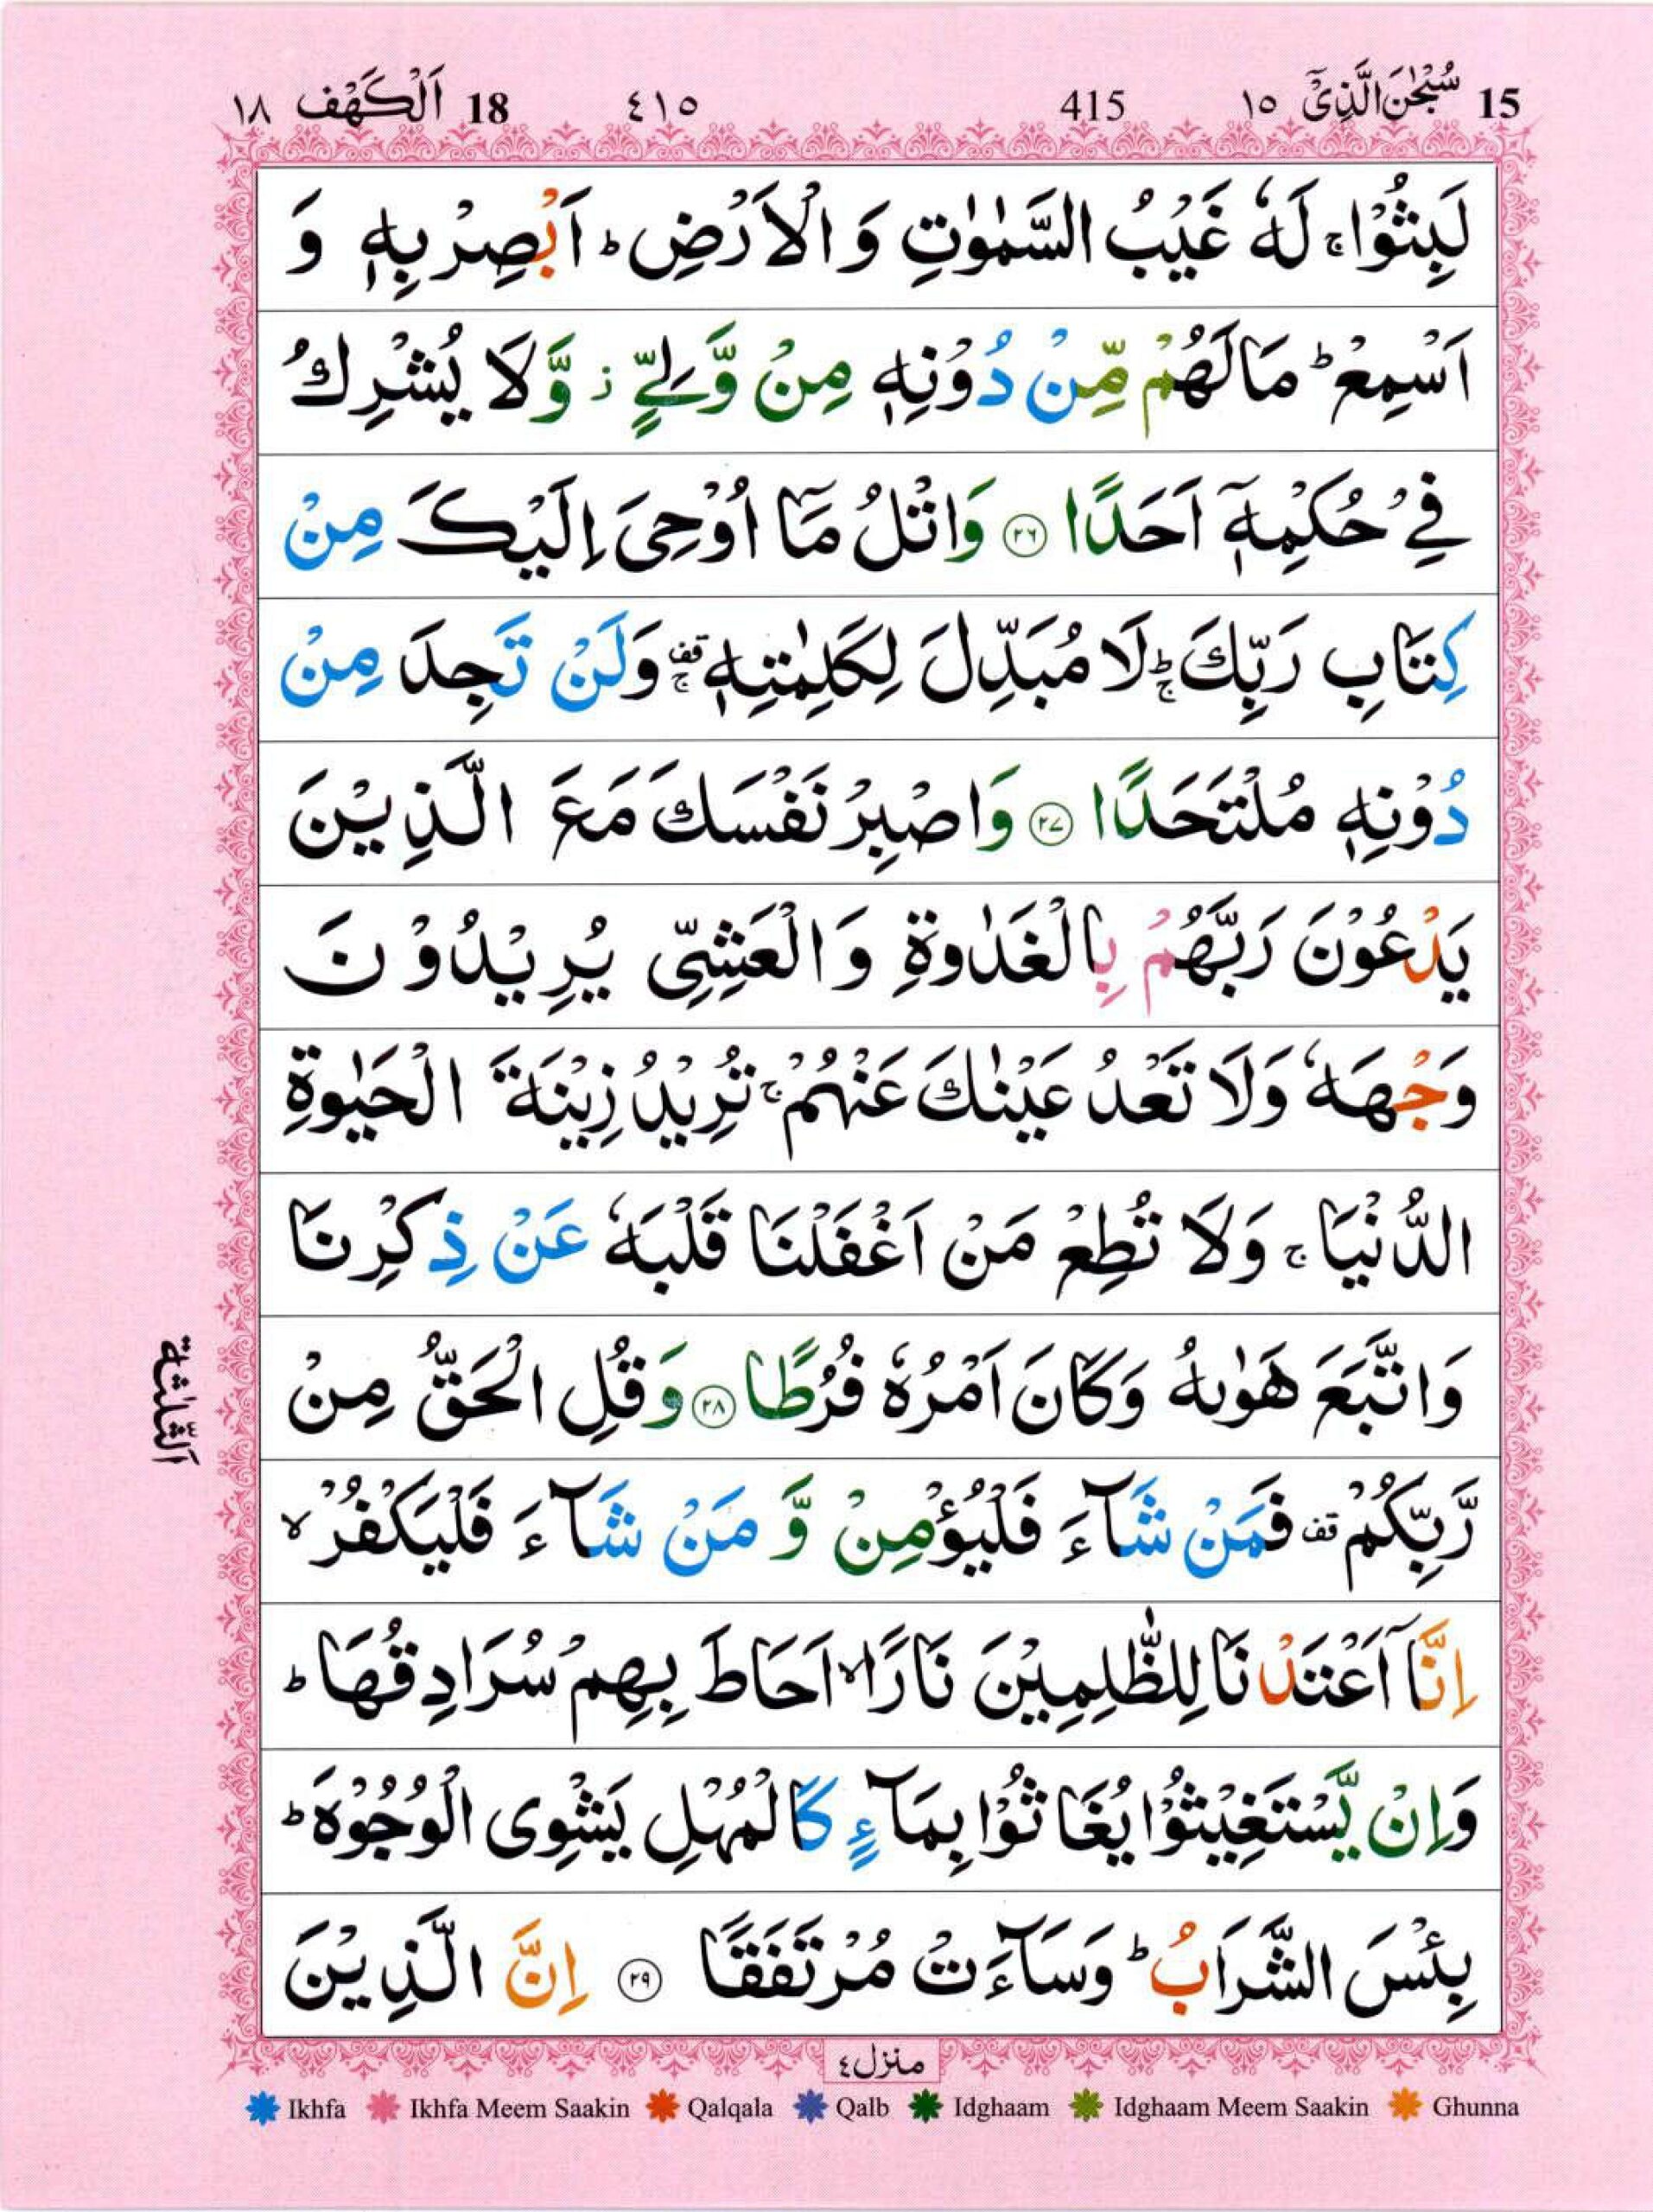 15 سُبْحٰنَ الَّذِیْۤ ١٥ 415 ٤١٥ 18 اَلْكَهْف ١٨
لَبِثُوْا ۚ لَهٗ غَیْبُ السَّمٰوٰتِ وَ الْاَرْضِ ؕ اَبْصِرْ بِهٖ وَ
اَسْمِعْ ؕ مَا لَهُمْ مِّنْ دُوْنِهٖ مِنْ وَّلِیٍّ ؗ وَّلَا یُشْرِكُ
فِیْ حُكْمِهٖۤ اَحَدًا ۝٢٦ وَاتْلُ مَاۤ اُوْحِیَ اِلَیْكَ مِنْ
كِتَابِ رَبِّكَ ؕۚ لَا مُبَدِّلَ لِكَلِمٰتِهٖ قف ۚ وَلَنْ تَجِدَ مِنْ
دُوْنِهٖ مُلْتَحَدًا ۝٢٧ وَاصْبِرْ نَفْسَكَ مَعَ الَّذِیْنَ
یَدْعُوْنَ رَبَّهُمْ بِالْغَدٰوةِ وَالْعَشِیِّ یُرِیْدُوْنَ
وَجْهَهٗ وَلَا تَعْدُ عَیْنٰكَ عَنْهُمْ ۚ تُرِیْدُ زِیْنَةَ الْحَیٰوةِ
الدُّنْیَا ۚ وَلَا تُطِعْ مَنْ اَغْفَلْنَا قَلْبَهٗ عَنْ ذِكْرِنَا
وَاتَّبَعَ هَوٰىهُ وَكَانَ اَمْرُهٗ فُرُطًا ۝٢٨ وَقُلِ الْحَقُّ مِنْ
اَلثَّلٰثَة
رَّبِّكُمْ قف فَمَنْ شَآءَ فَلْیُؤْمِنْ وَّ مَنْ شَآءَ فَلْیَكْفُرْ ۙ
اِنَّاۤ اَعْتَدْنَا لِلظّٰلِمِیْنَ نَارًا ۙ اَحَاطَ بِهِمْ سُرَادِقُهَا ؕ
وَاِنْ یَّسْتَغِیْثُوْا یُغَاثُوْا بِمَآءٍ كَالْمُهْلِ یَشْوِی الْوُجُوْهَ ؕ
بِئْسَ الشَّرَابُ ؕ وَسَآءَتْ مُرْتَفَقًا ۝٢٩ اِنَّ الَّذِیْنَ
منزل ٤
Ikhfa Ikhfa Meem Saakin Qalqala Qalb Idghaam Idghaam Meem Saakin Ghunna